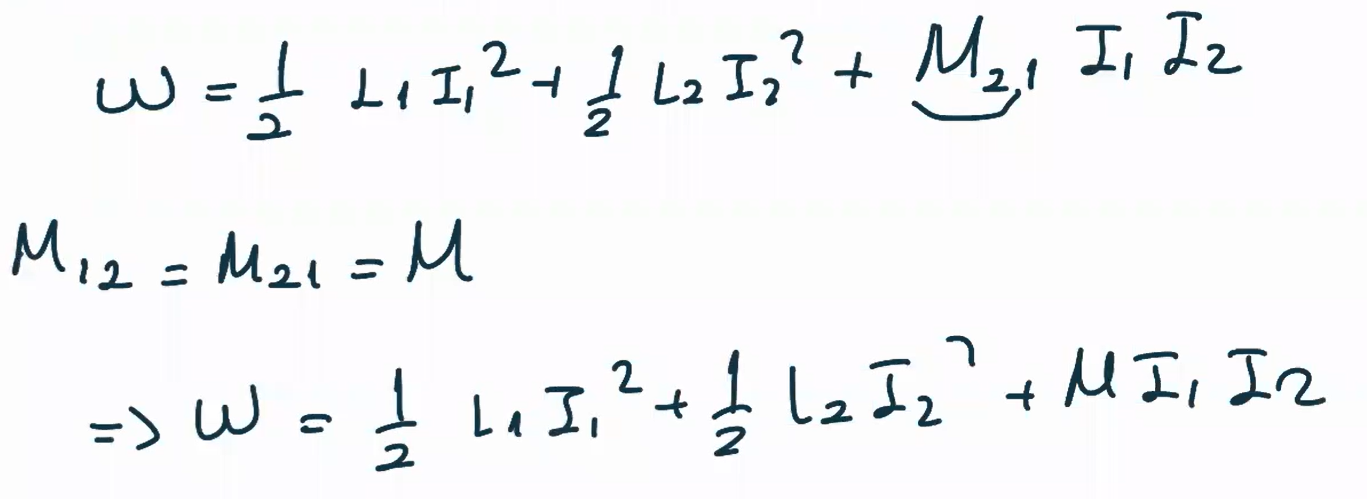 W = 1/2 L₁ I₁² + 1/2 L₂ I₂² + M₂₁ I₁ I₂
M₁₂ = M₂₁ = M
=> W = 1/2 L₁ I₁² + 1/2 L₂ I₂² + M I₁ I₂